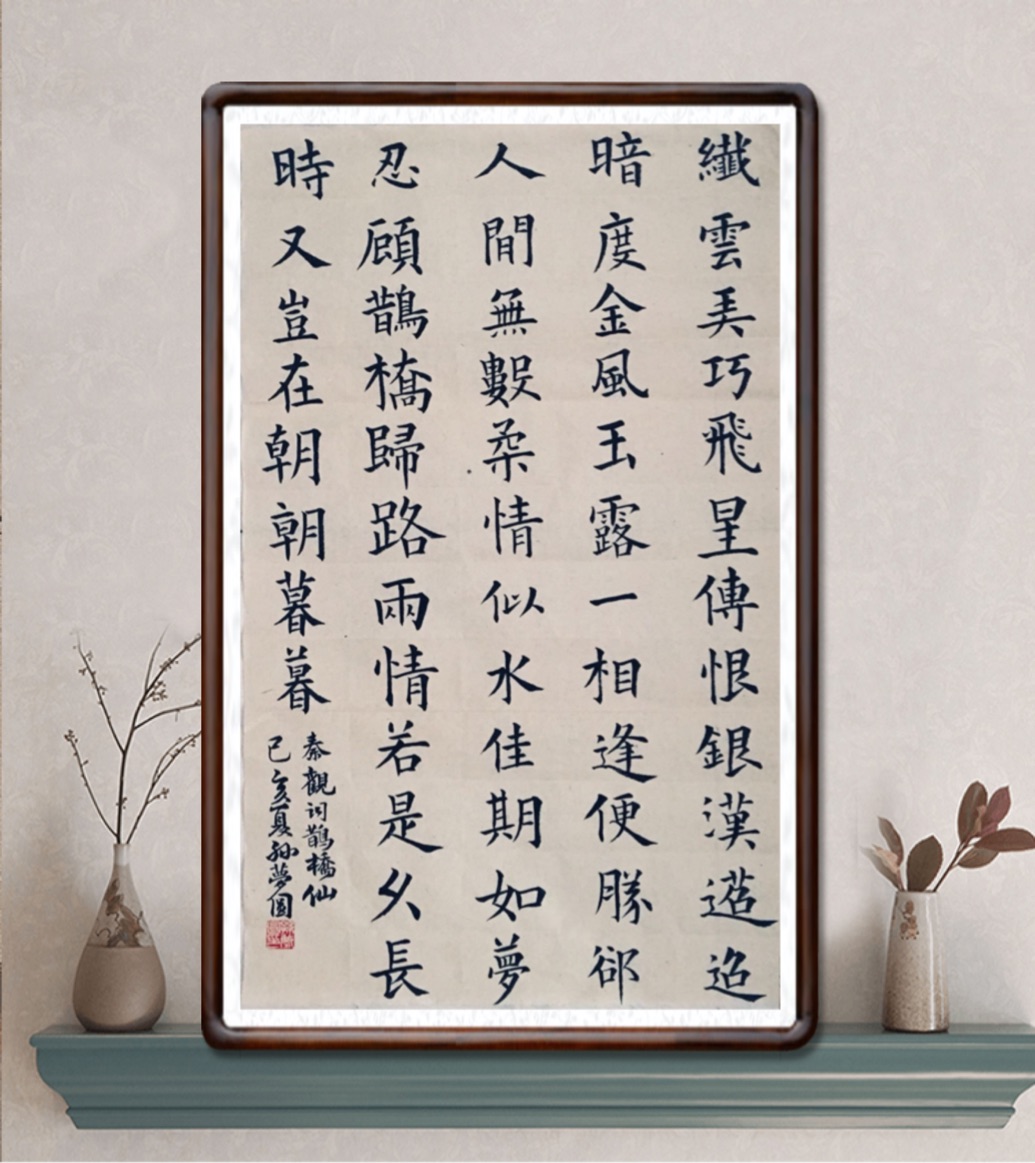 纖雲弄巧飛星傳恨銀漢迢迢
暗度金風玉露一相逢便勝卻
人間無數柔情似水佳期如夢
忍顧鵲橋歸路兩情若是久長
時又豈在朝朝暮暮
秦觀词鵲橋仙
己亥夏孙夢圓